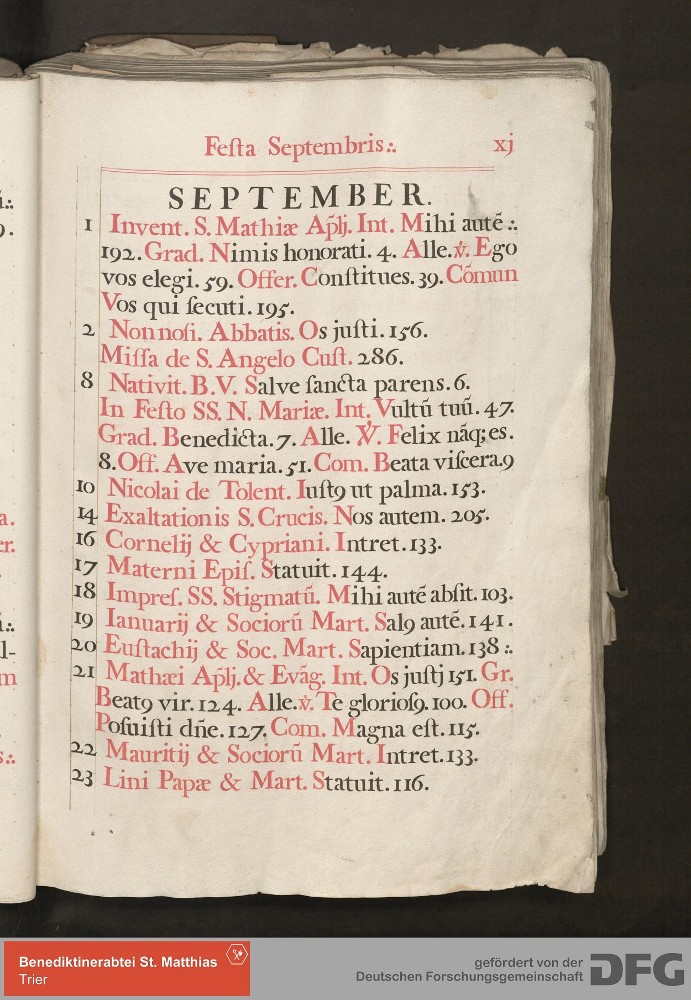 Feſta Septembris∴ xj
SEPTEMBER.
1 Invent. S. Mathiæ Ap̃lj. Int. Mihi autẽ ∴
192. Grad. Nimis honorati. 4. Alle. ℣. Ego
vos elegi. 59. Offer. Conſtitues. 39. Cõmun
Vos qui ſecuti. 195.
2 Nonnoſi. Abbatis. Os juſti. 156.
Miſſa de S. Angelo Cuſt. 286.
8 Nativit. B. V. Salve ſancta parens. 6.
In Feſto SS. N. Mariæ. Int. Vultũ tuũ. 47.
Grad. Benedicta. 7. Alle. ℣. Felix nãq; es.
8. Off. Ave maria. 51. Com. Beata viſcera. 9
10 Nicolai de Tolent. Iuſt9 ut palma. 153.
14 Exaltationis S. Crucis. Nos autem. 205.
16 Cornelij & Cypriani. Intret. 133.
17 Materni Epiſ. Statuit. 144.
18 Impreſ. SS. Stigmatũ. Mihi autẽ abſit. 103.
19 Ianuarij & Sociorũ Mart. Sal9 autẽ. 141.
20 Euſtachij & Soc. Mart. Sapientiam. 138 ∴
21 Mathæi Ap̃lj. & Evãg. Int. Os juſtj 151. Gr.
Beat9 vir. 124. Alle. ℣. Te glorioſ9. 100. Off.
Poſuiſti dñe. 127. Com. Magna eſt. 115.
22 Mauritij & Sociorũ Mart. Intret. 133.
23 Lini Papæ & Mart. Statuit. 116.
Benediktinerabtei St. Matthias
Trier
gefördert von der
Deutschen Forschungsgemeinschaft
DFG